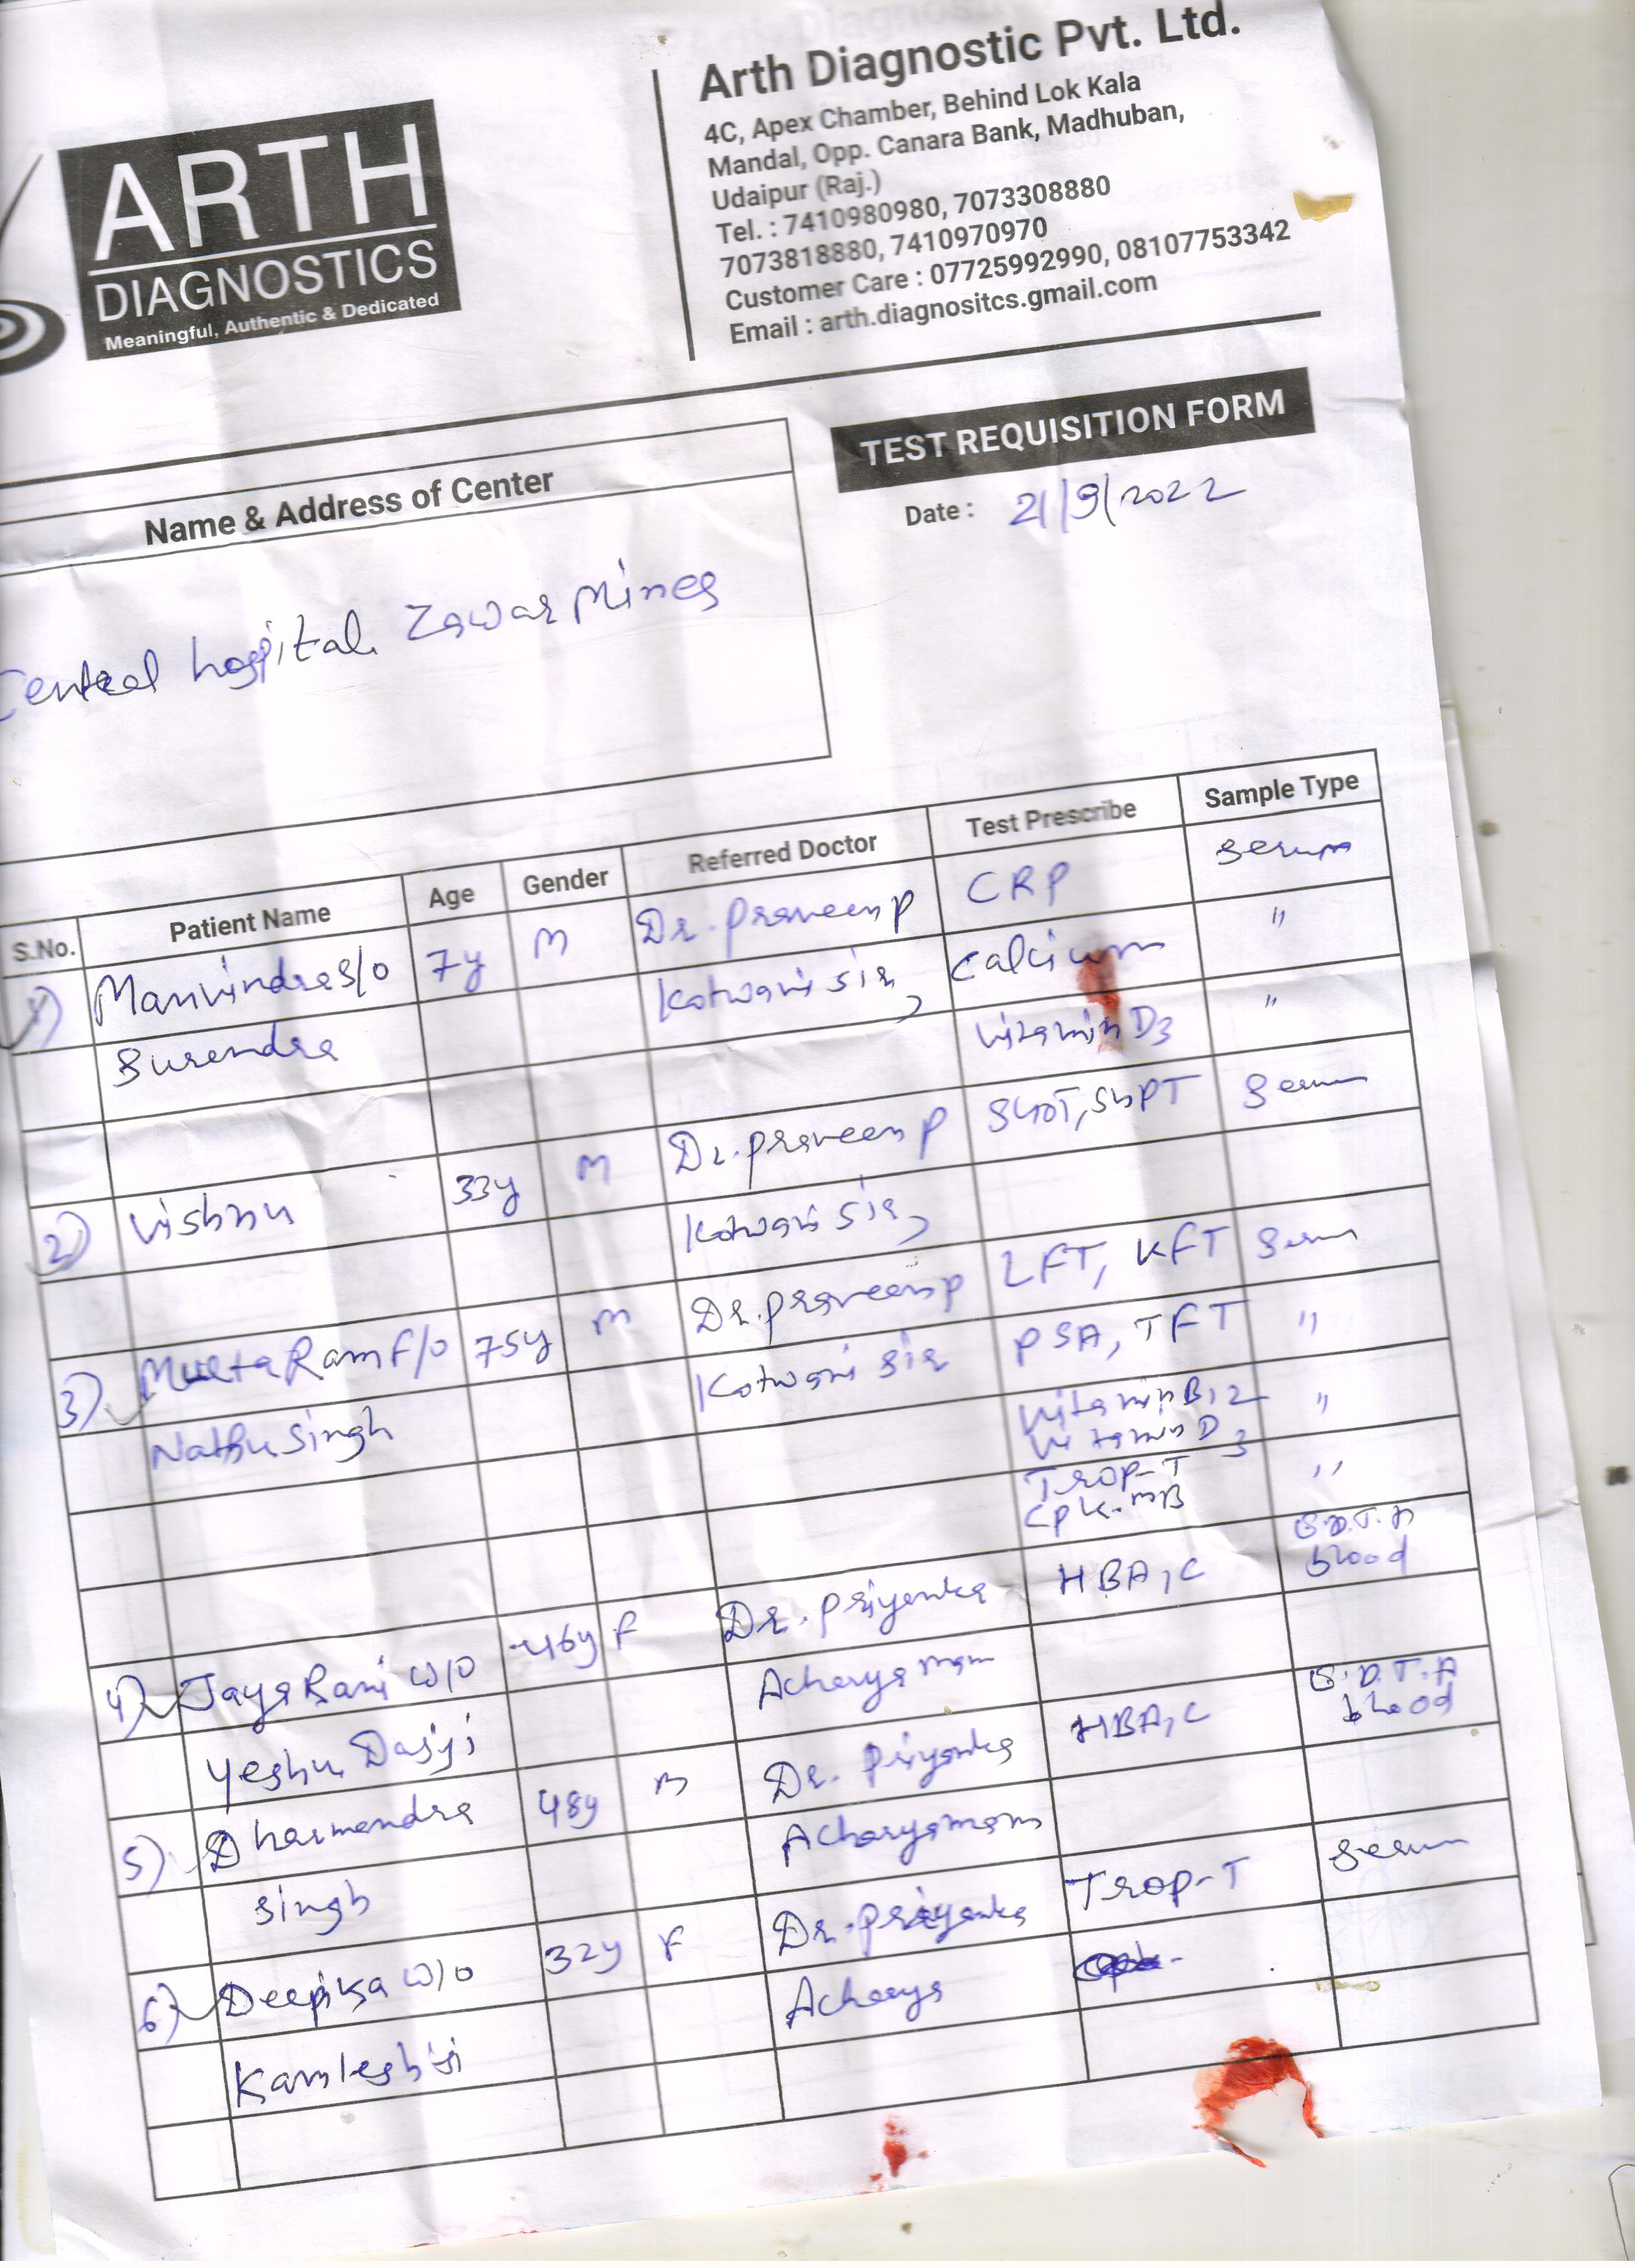 ARTH
DIAGNOSTICS
Meaningful, Authentic & Dedicated
Arth Diagnostic Pvt. Ltd.
4C, Apex Chamber, Behind Lok Kala
Mandal, Opp. Canara Bank, Madhuban,
Udaipur (Raj.)
Tel. : 7410980980, 7073308880
7073818880, 7410970970
Customer Care : 07725992990, 08107753342
Email : arth.diagnositcs.gmail.com
TEST REQUISITION FORM
Date : 21/9/2022
Name & Address of Center
Central hospital. Zawar Mines
S.No. Patient Name Age Gender Referred Doctor Test Prescribe Sample Type
1) Manvindra S/o 7y M Dr. Praveen P CRP Serum
Surendra Kotwani sir, Calcium "
Vitamin D3 "
2) Vishnu 33y M Dr. Praveen P SGOT, SGPT Serum
Kotwani sir,
3) Ram F/o 75y M Dr. Praveen P LFT, KFT Serum
Nathu Singh Kotwani sir PSA, TFT "
Vitamin B12 "
Vitamin D3
Trop-T "
CPK-MB
4) Jaya Rani W/O 46y F Dr. Priyanka HBA1C E.D.T.A blood
Yeshu Dasji Acharya mam
5) Dharmendra 48y M Dr. Priyanka HBA1C E.D.T.A blood
Singh Acharya mam
6) Deepika W/o 32y F Dr. Priyanka Trop-T Serum
Kamlesh ji Acharya